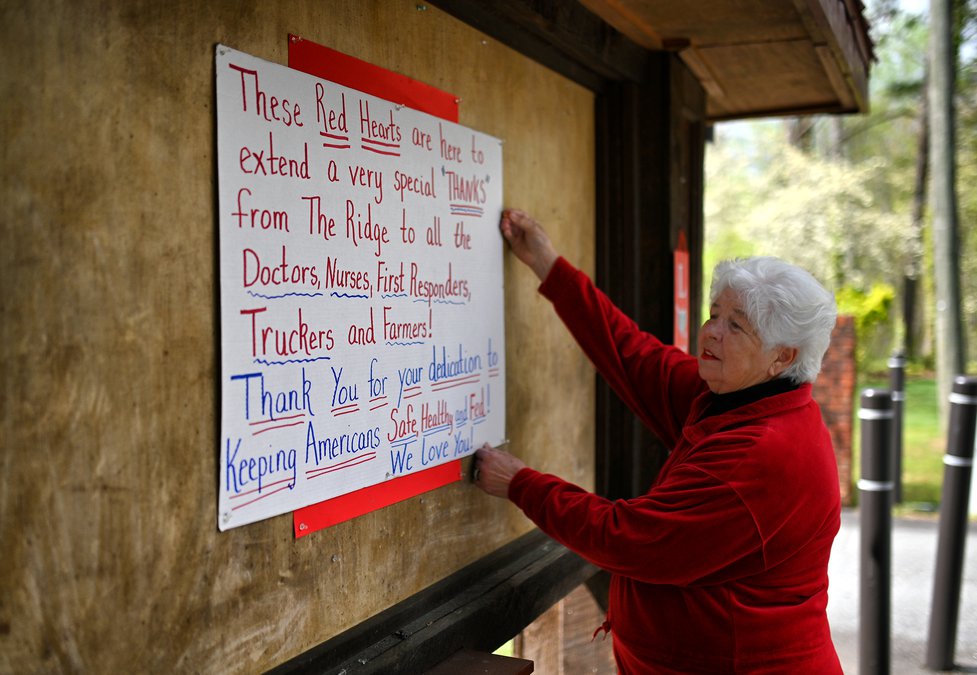 These Red Hearts are here to
extend a very special "THANKS"
from The Ridge to all the
Doctors, Nurses, First Responders,
Truckers and Farmers!
Thank You for your dedication to
Keeping Americans Safe, Healthy and Fed!
We Love You!